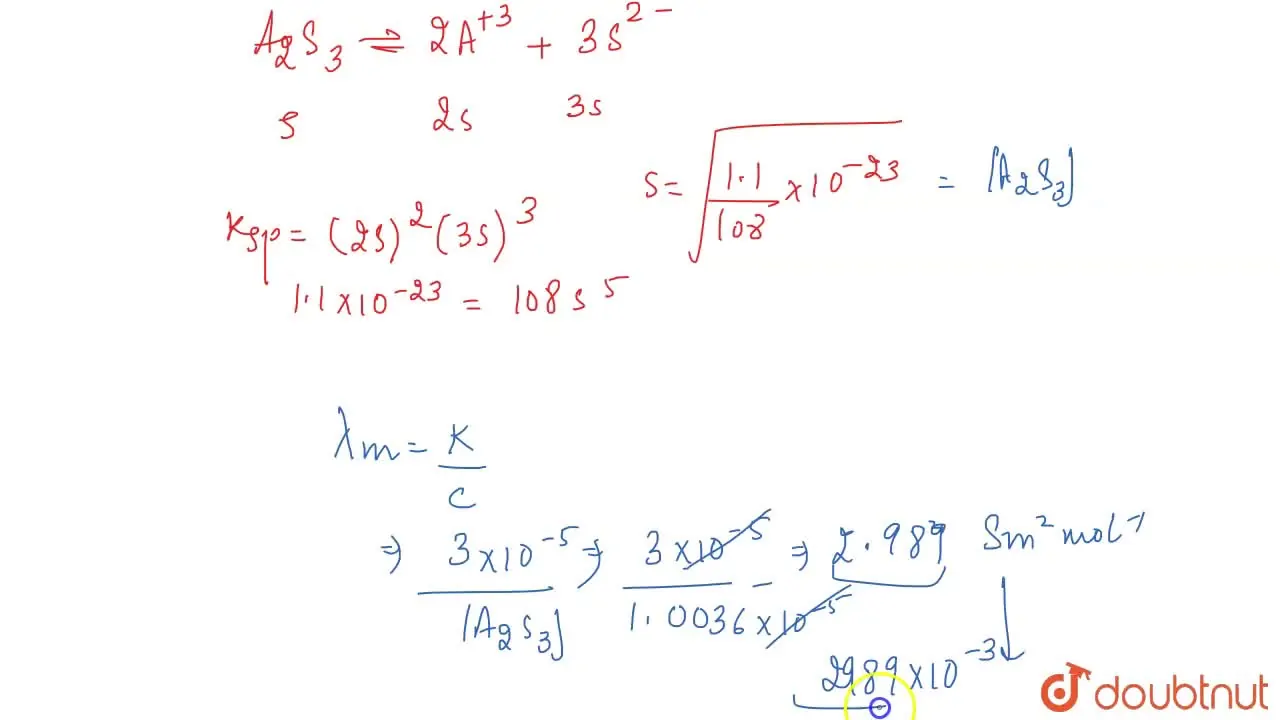 A₂S₃ ⇌ 2A⁺³ + 3S²⁻
s 2s 3s
Ksp = (2s)² (3s)³
1.1×10⁻²³ = 108 s⁵
s = √(1.1/108 ×10⁻²³) = [A₂S₃]
λm = K/C
⇒ 3×10⁻⁵/[A₂S₃] ⇒ 3×10⁻⁵/1.0036×10⁻⁵ ⇒ 2.989 Sm² mol⁻¹
2989×10⁻³
doubtnut